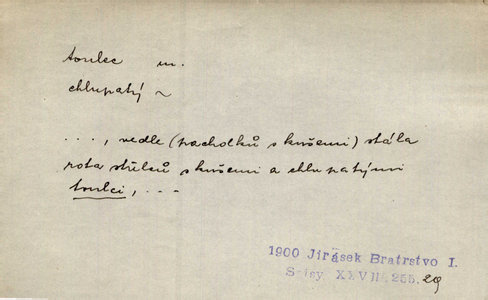 toulec m.
chlupatý ~
..., vedle (pacholků s kušemi) stála
rota střelců s kušemi a chlupatými
toulci, ...
1900 Jirásek Bratrstvo I.
Spisy XXVII. 255. 29